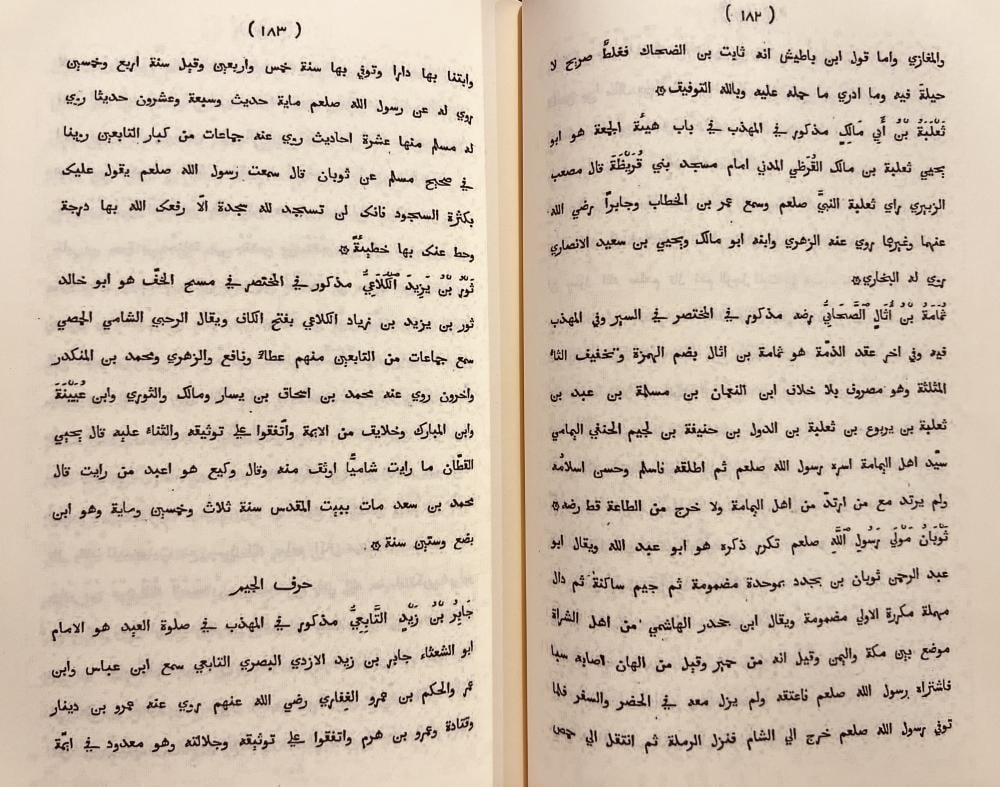 ( ١٨٢ )
والمغازي واما قول ابن باطيش انه ثابت بن الضحاك فغلطٌ صريح لا
حيلة فيه وما ادري ما حمله عليه وبالله التوفيق۞
ثَعْلَبَةُ بْنُ أَبِي مَالِكٍ مذكور في المهذب في باب هيئة الجمعة هو ابو
يحيي ثعلبة بن مالك القُرَظي المدني امام مسجد بني قُرَيْظَةَ قال مصعب
الزبيري راي ثعلبة النبيَّ صلعم وسمع عمر بن الخطاب وجابراً رضي الله
عنهما وغيرها روي عنه الزهري وابنه ابو مالك ويحيي بن سعيد الانصاري
روي له البخاري۞
ثُمَامَةُ بْنُ أُثَالٍ ٱلصَّحَابِيُّ رضه مذكور في المختصر في السير وفي المهذب
فيه وفي اخر عقد الذمّة هو ثمامة بن اثال بضم الهمزة وتخفيف الثاء
المثلثة وهو مصروف بلا خلاف ابن النعمان بن مسلمة بن عبد بن
ثعلبة بن يربوع بن ثعلبة بن الدول بن حنيفة بن لجيم الحنفي اليمامي
سيّد اهل اليمامة اسره رسول الله صلعم ثم اطلقه فاسلم وحسن اسلامُه
ولم يرتد مع من ارتدّ من اهل اليمامة ولا خرج من الطاعة قط رضه۞
ثَوْبَانُ مَوْلَي رَسُولِ ٱللَّهِ صلعم تكرر ذكره هو ابو عبد الله ويقال ابو
عبد الرحمن ثوبان بن بجدد بموحدة مضمومة ثم جيم ساكنة ثم دال
مهملة مكررة الاولي مضمومة ويقال ابن جحدر الهاشمي من اهل الشراة
موضع بين مكة واليمن وقيل انه من حمير وقيل من الهان اصابه سبا
فاشتراه رسول الله صلعم فاعتقه ولم يزل معه في الحضر والسفر فلما
توفي رسول الله صلعم خرج الي الشام فنزل الرملة ثم انتقل الي حمص
( ١٨٣ )
وابتنا بها دارا وتوفي بها سنة خمس واربعين وقيل سنة اربع وخمسين
روي له عن رسول الله صلعم ماية حديث وسبعة وعشرون حديثا روي
له مسلم منها عشرة احاديث روي عنه جماعات من كبار التابعين روينا
في صحيح مسلم عن ثوبان قال سمعت رسول الله صلعم يقول عليك
بكثرة السجود فانك لن تسجد لله سجدة الّا رفعك الله بها درجة
وحط عنك بها خطيئةً۞
ثَوْرُ بْنُ يَزِيدَ ٱلْكَلَاعِيُّ مذكور في المختصر في مسح الخفّ هو ابو خالد
ثور بن يزيد بن زياد الكلاعي بفتح الكاف ويقال الرحبي الشامي الحمصي
سمع جماعات من التابعين منهم عطاء ونافع والزهري ومحمد بن المنكدر
واخرون روي عنه محمد بن اسحاق بن يسار ومالك والثوري وابن عُيَيْنَةَ
وابن المبارك وخلايف من الايمة واتّفقوا علي توثيقه والثناء عليه قال يحيي
القطّان ما رايت شاميًّا اوثق منه وقال وكيع هو اعبد من رايت قال
محمد بن سعد مات ببيت المقدس سنة ثلاث وخمسين وماية وهو ابن
بضع وستين سنة۞
حرف الجيم
جَابِرُ بْنُ زَيْدٍ التَّابِعِيُّ مذكور في المهذب في صلوة العيد هو الامام
ابو الشعثاء جابر بن زيد الازدي البصري التابعي سمع ابن عباس وابن
عمر والحكم بن عمرو الغفاري رضي الله عنهم روي عنه عمرو بن دينار
وقتادة وعمرو بن هرم واتفقوا علي توثيقه وجلالته وهو معدود في ايمّة